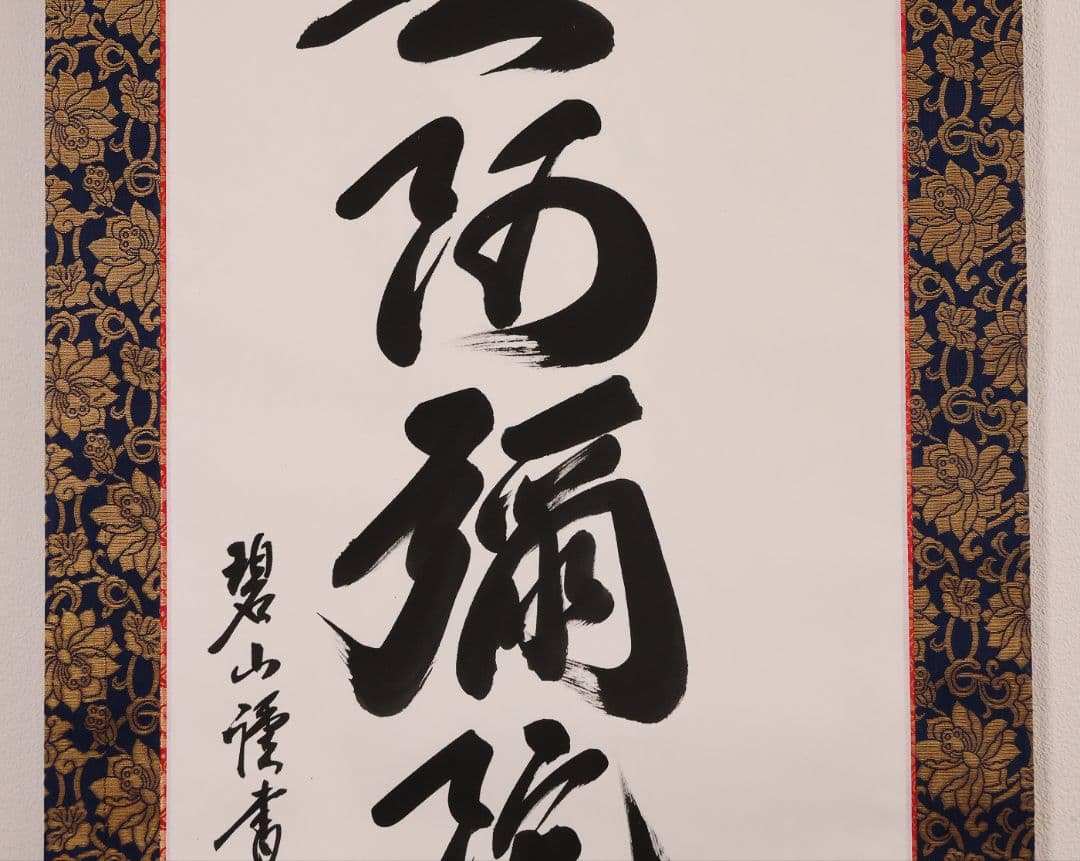 阿彌陀
碧山謹書